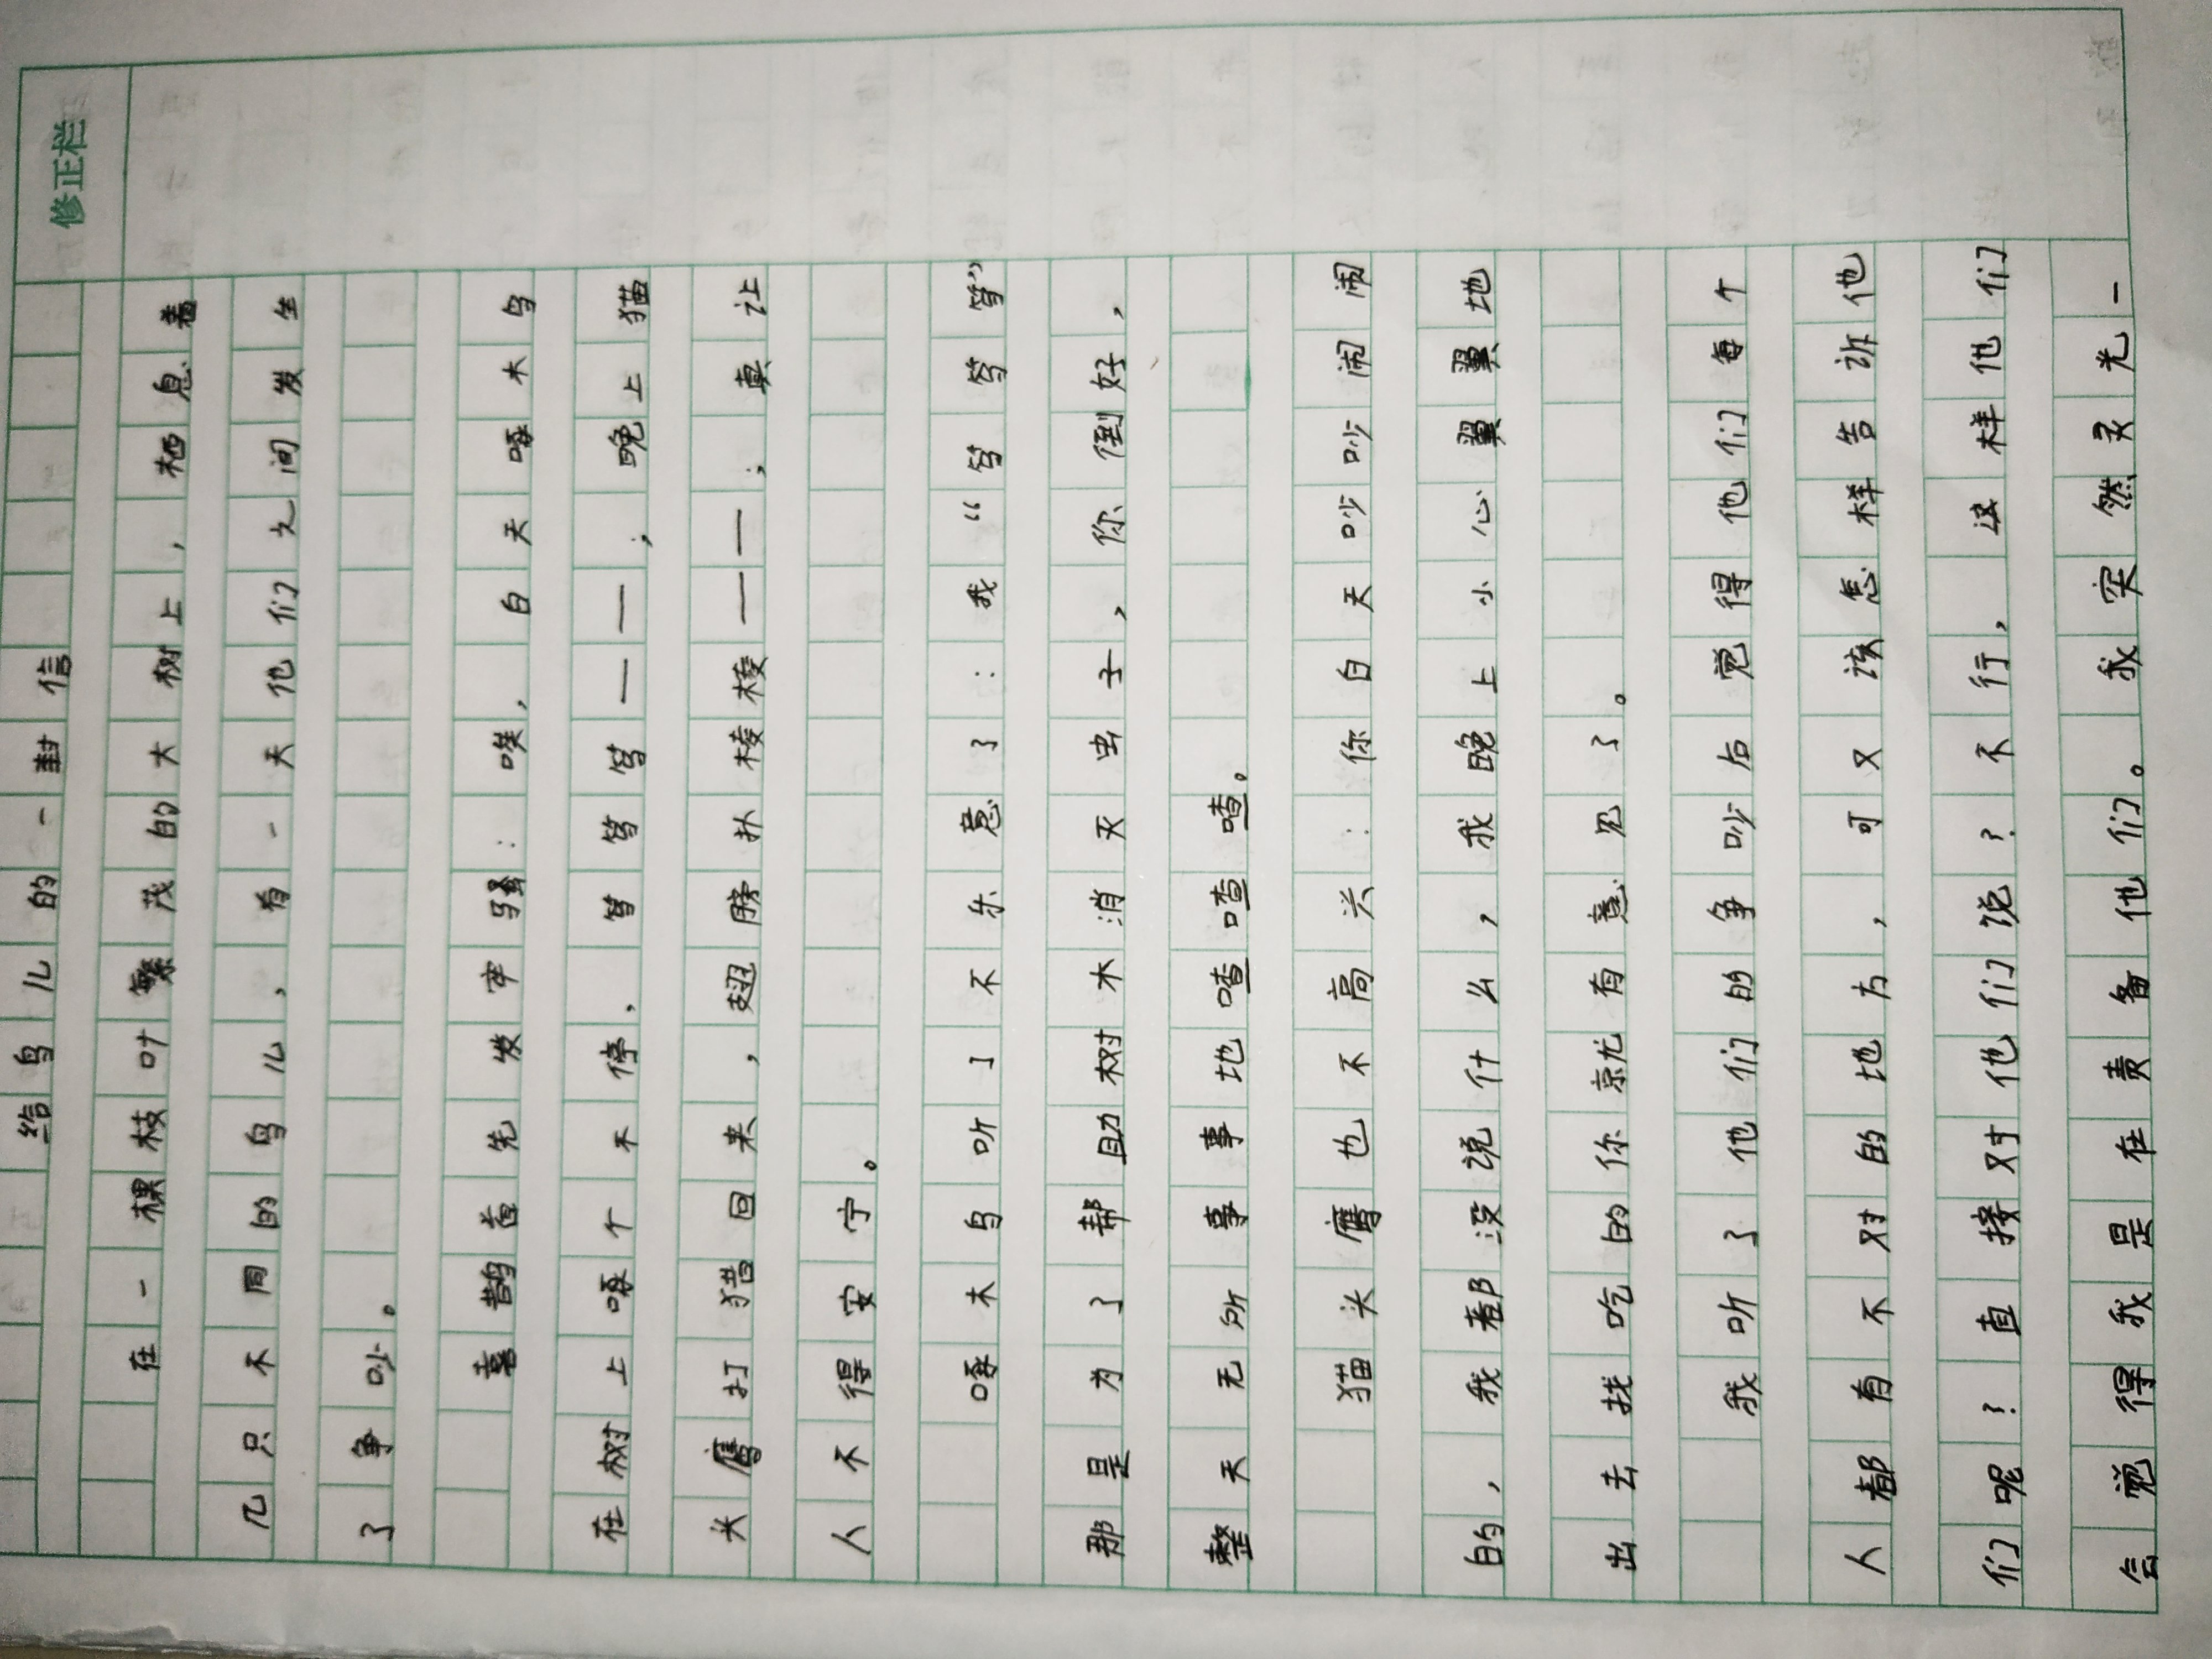 修正栏
给鸟儿的一封信
在一棵枝叶繁茂的大树上，栖息着
几只不同的鸟儿，有一天他们之间发生
了争吵。
喜鹊首先发牢骚：唉，白天啄木鸟
在树上啄个不停，笃笃笃——；晚上猫
头鹰打猎回来，翅膀扑棱棱——；真让
人不得安宁。
啄木鸟听了不乐意了：我“笃笃笃”
那是为了帮助树木消灭虫子，你倒好，
整天无所事事地喳喳喳。
猫头鹰也不高兴：你白天吵吵闹闹
的，我都没说什么，我晚上小心翼翼地
出去找吃的你就有意见了。
我听了他们的争吵后觉得他们每个
人都有不对的地方，可又该怎样告诉他
们呢？直接对他们说？不行，这样他们
会觉得我是在责备他们。我突然灵光一